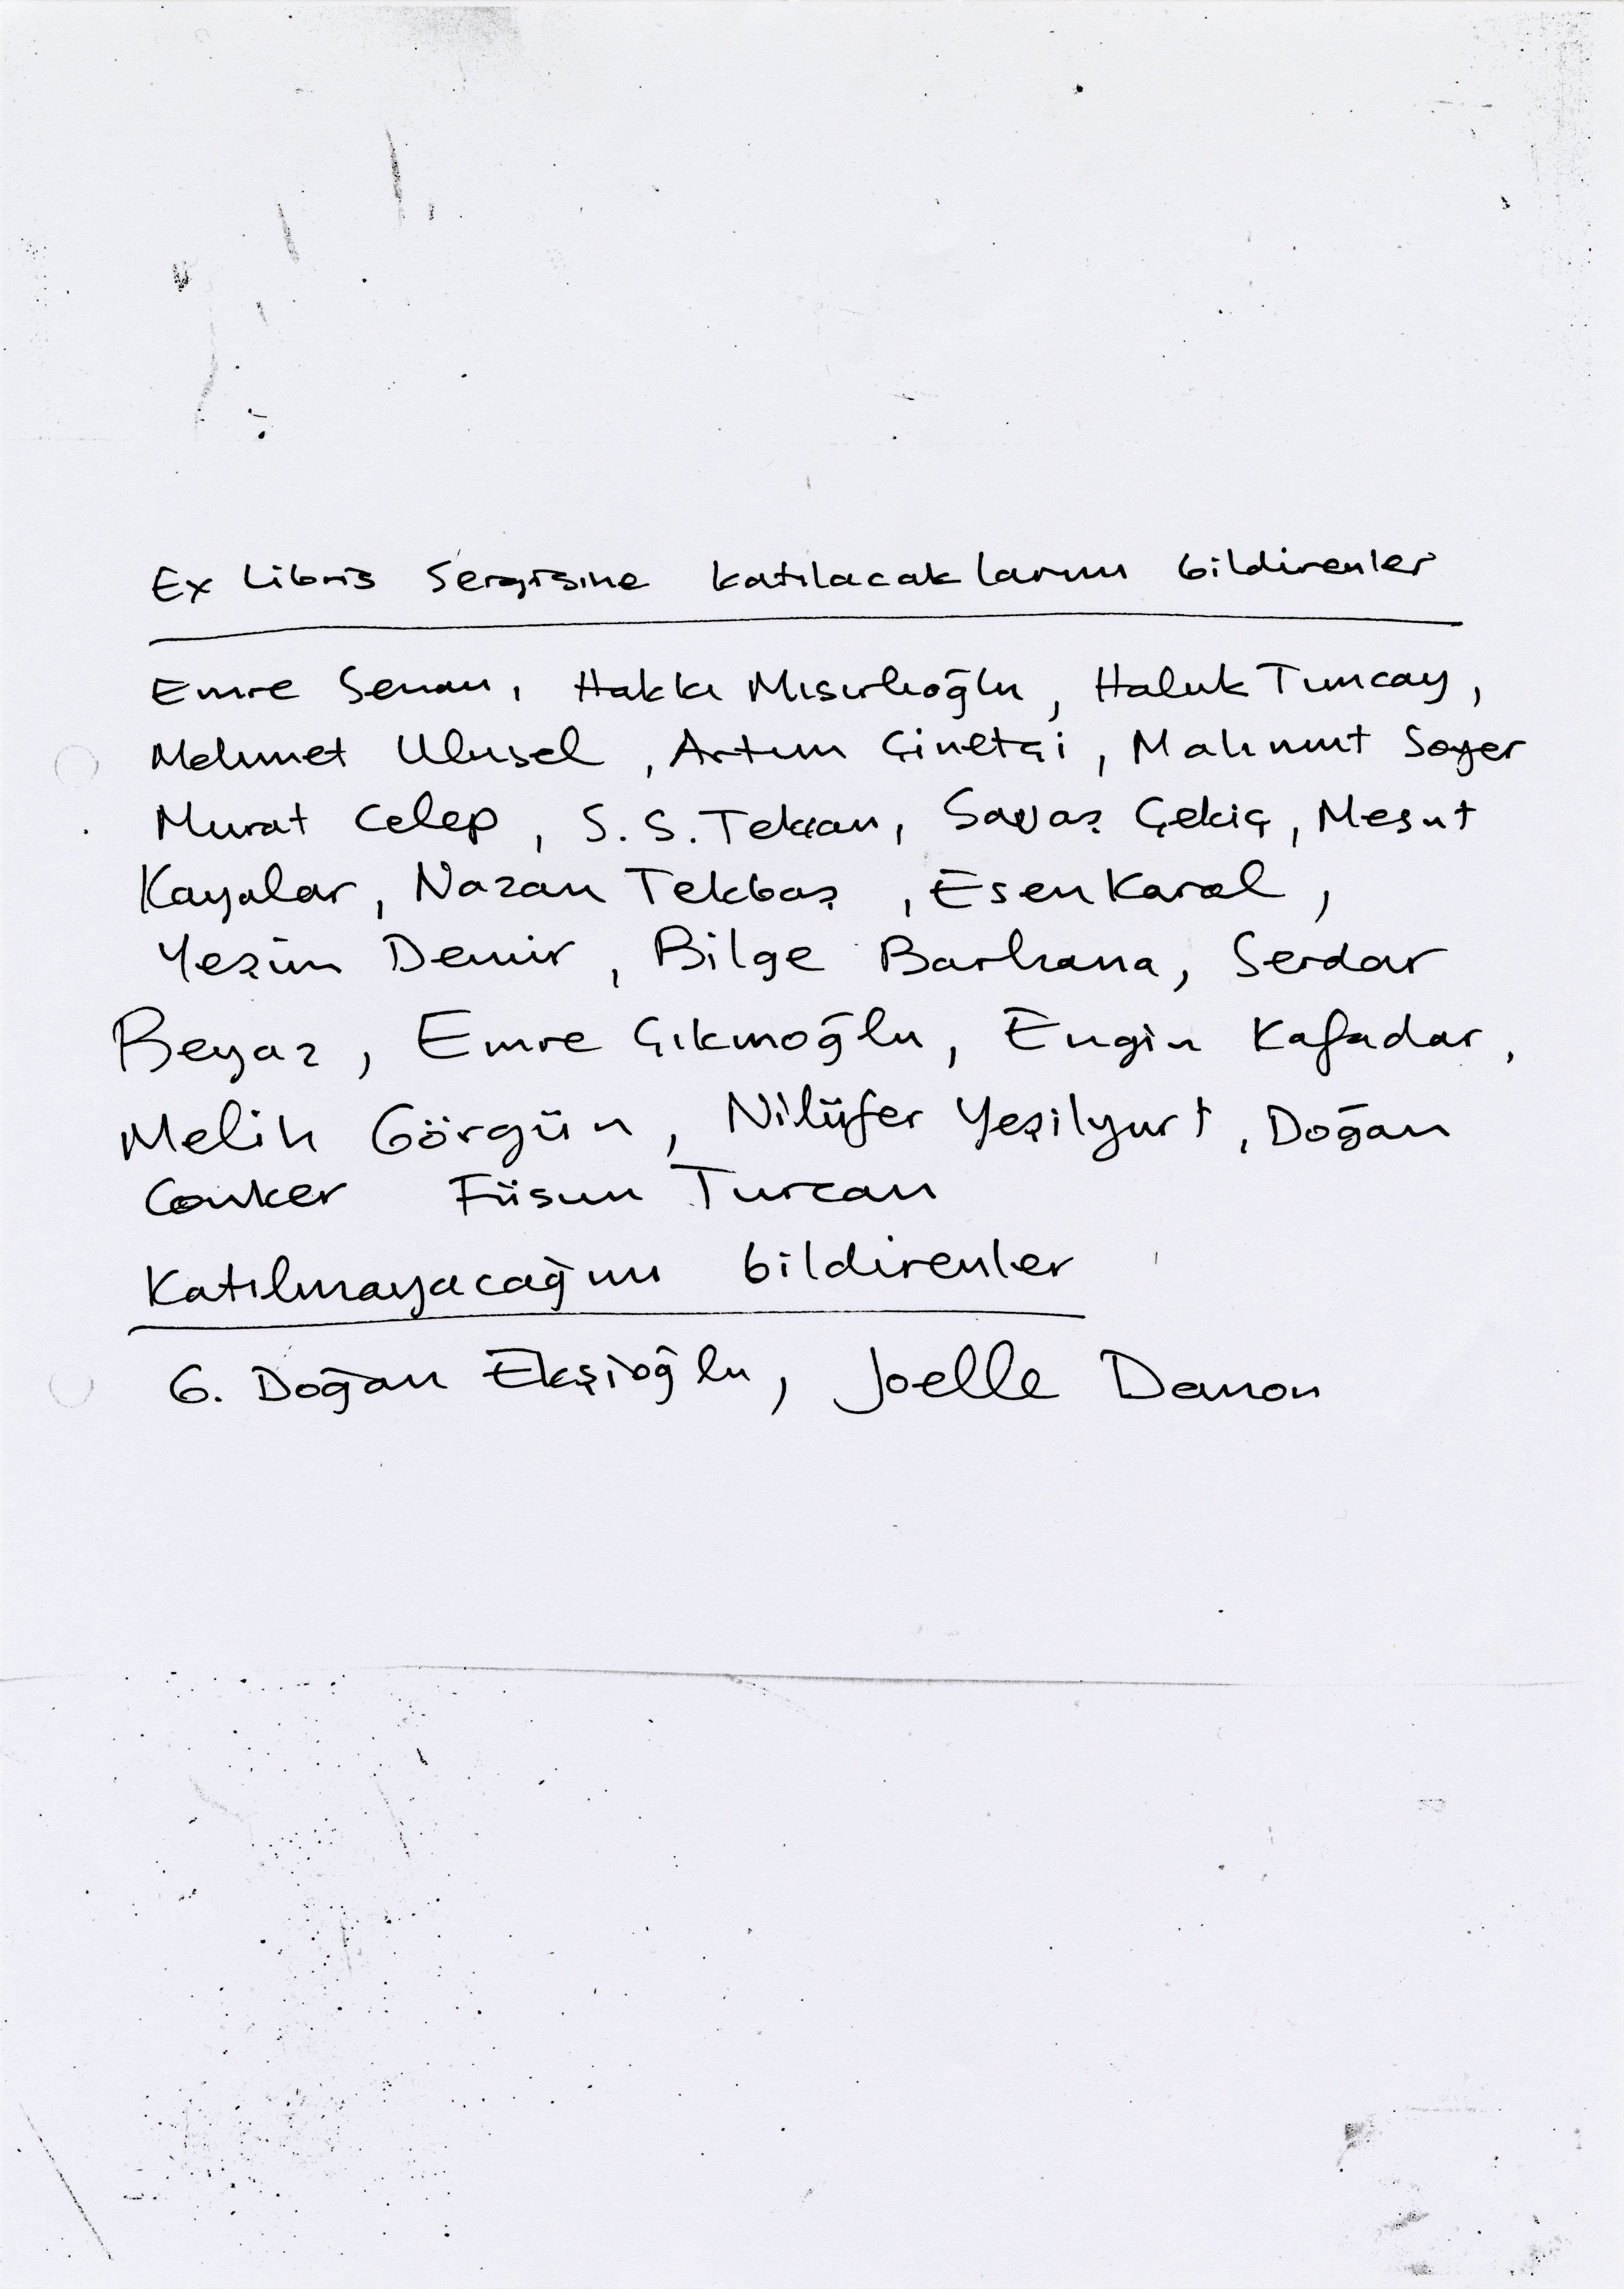 Ex Libris Sergisine katılacaklarını bildirenler
Emre Senan, Hakkı Mısırlıoğlu, Haluk Tuncay,
Mehmet Ulusel, Artun Çinetçi, Mahmut Soyer
Murat Celep, S.S. Tekcan, Savaş Çekiç, Mesut
Kayalar, Nazan Tekbaş, Esen Karol,
Yeşim Demir, Bilge Barhana, Serdar
Beyaz, Emre Çıkınoğlu, Engin Kafadar,
Melih Görgün, Nilüfer Yeşilyurt, Doğan
Conker Füsun Turcan
Katılmayacağını bildirenler
G. Doğan Ekşioğlu, Joelle Danon